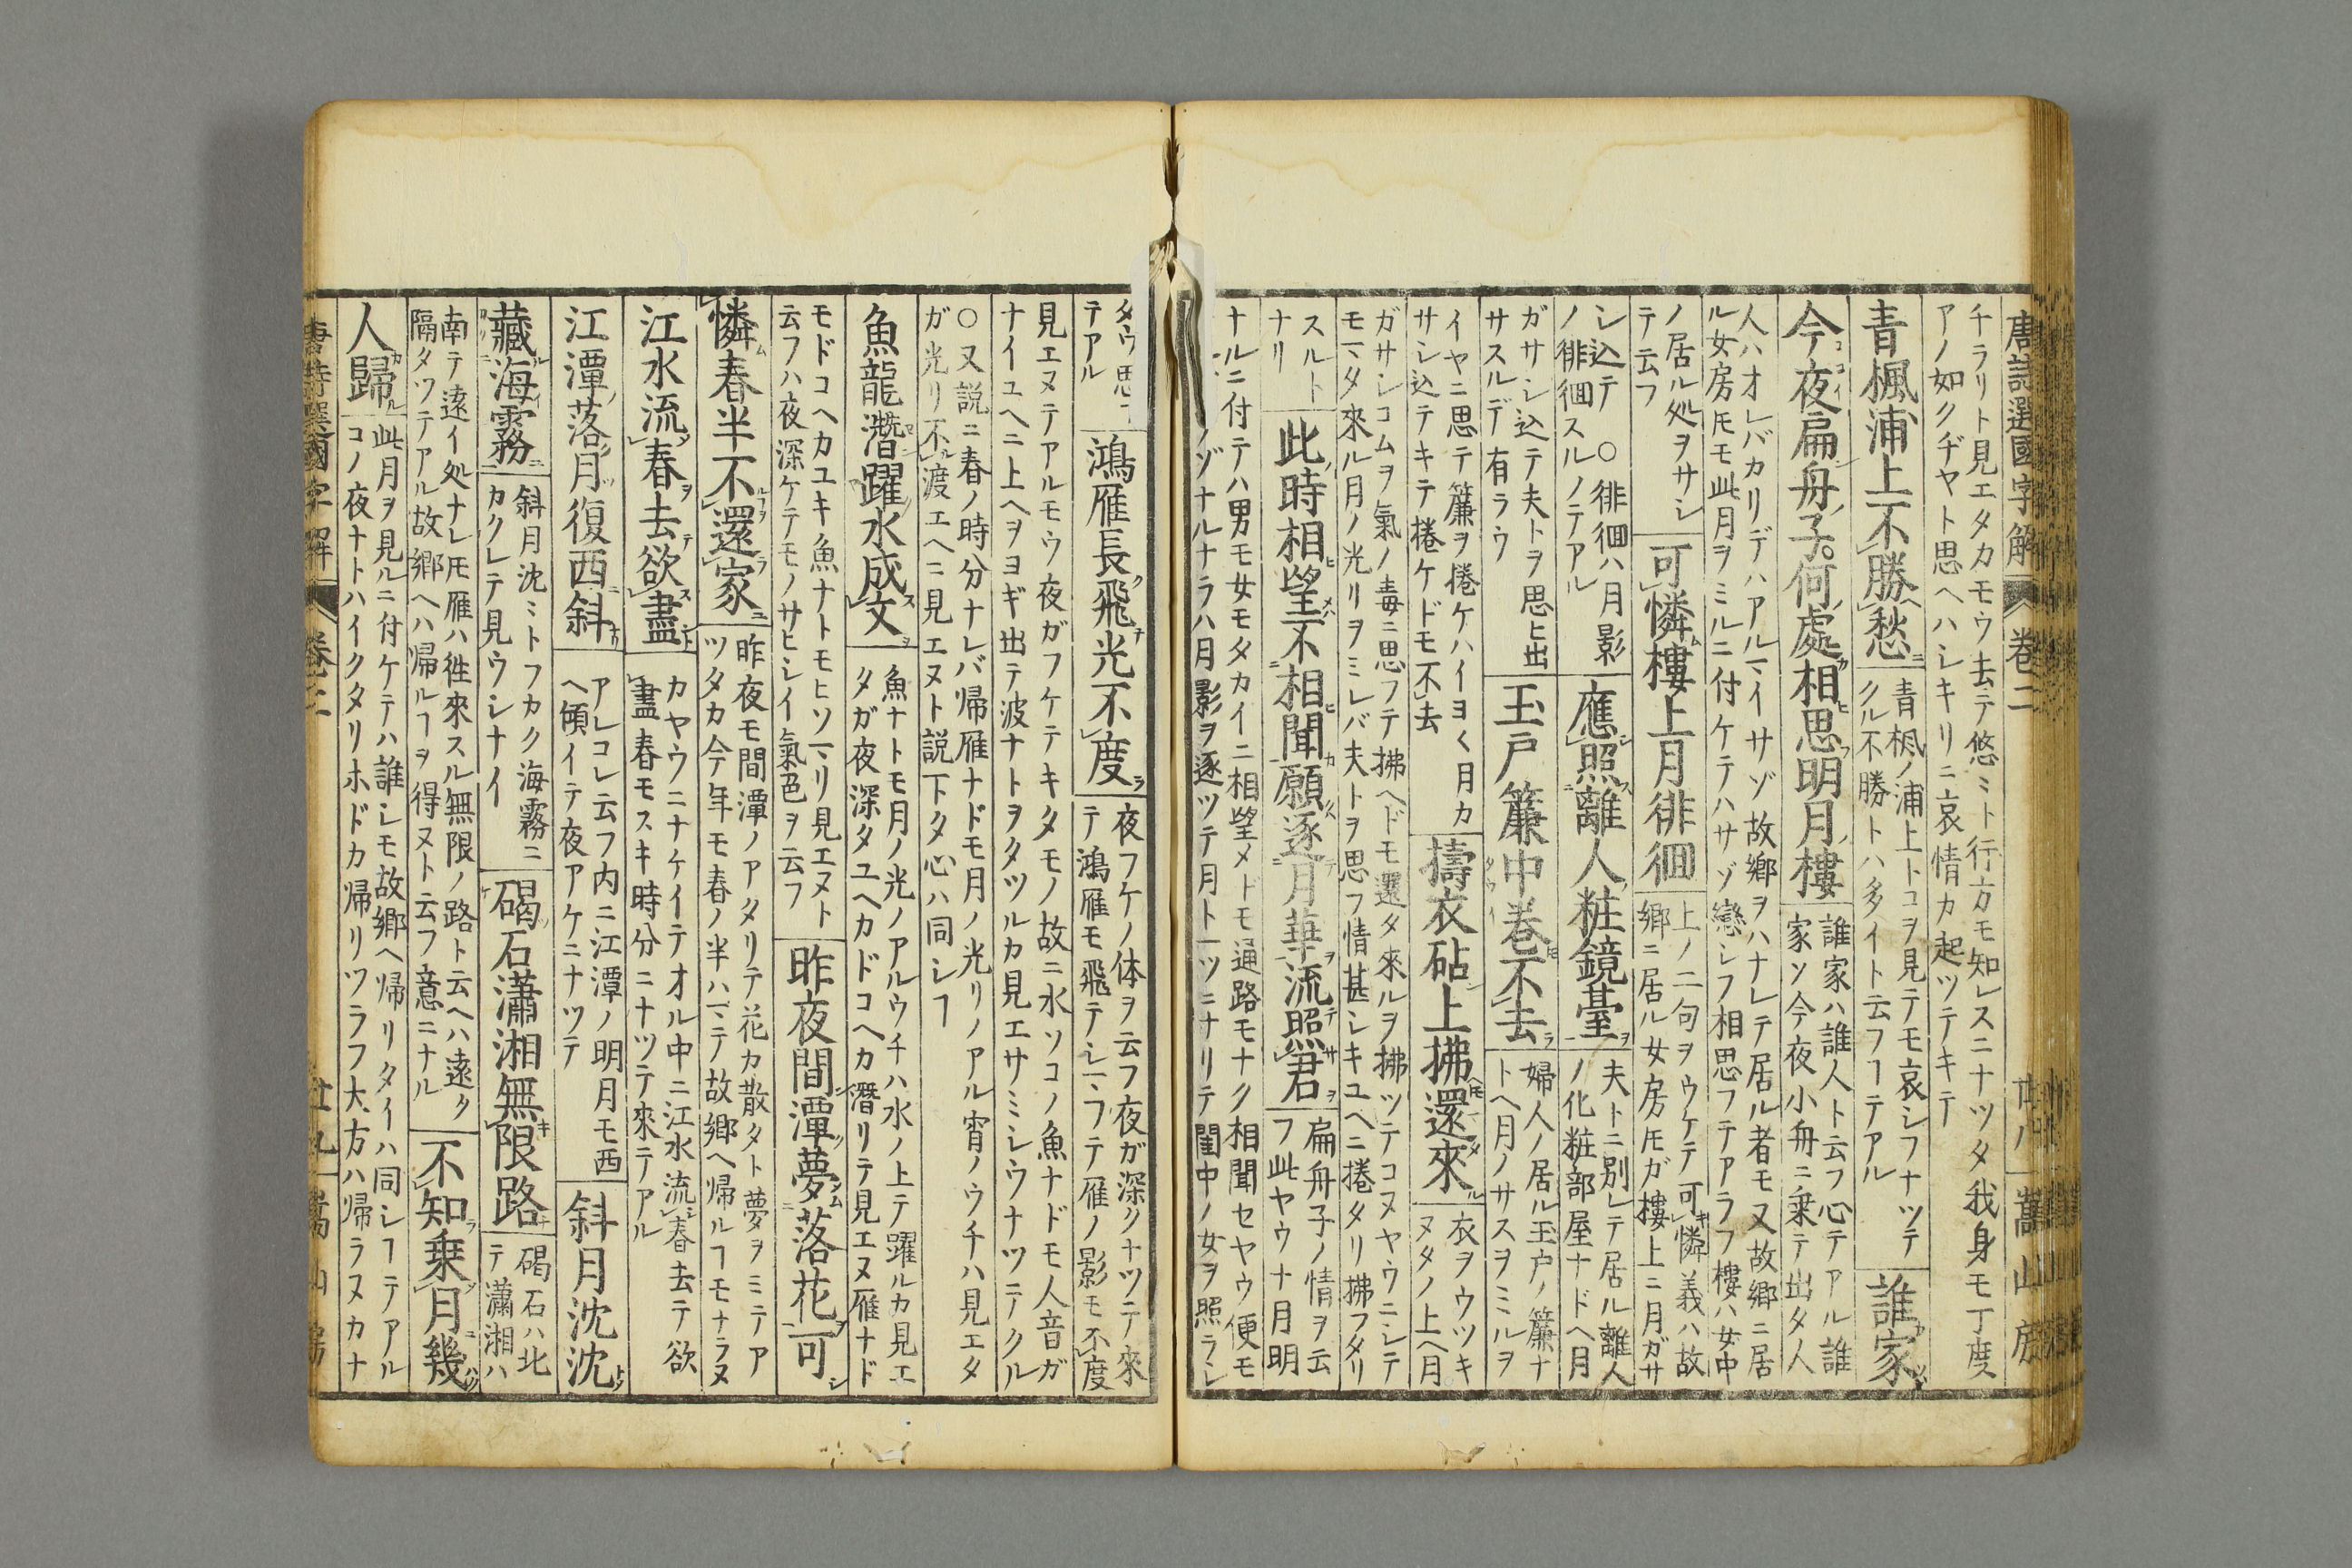 唐詩選國字解 卷二 廿八 嵩山房
チラリト見エタカモウ去テ悠〻ト行方モ知レスニナツタ我身モ丁度
アノ如クヂヤト思ヘハシキリニ哀情カ起ツテキテ
青楓浦上不勝愁
青楓ノ浦上トコヲ見テモ哀シフナツテ
クル不勝トハ多イト云フヿテアル
誰家
今夜扁舟子何處相思明月樓
誰家ハ誰人ト云フ心テアル誰
家ソ今夜小舟ニ乗テ出タ人
人ハオレバカリデハアルマイサゾ故郷ヲハナレテ居ル者モ又故郷ニ居
ル女房トモモ此月ヲミルニ付ケテハサゾ戀シフ相思フテアラフ樓ハ女中
ノ居ル処ヲサシ
テ云フ
可憐樓上月徘徊
上ノ二句ヲウケテ可憐義ハ故
郷ニ居ル女房トモガ樓上ニ月ガサ
シ込テ ○徘徊ハ月影
ノ徘徊スルノテアル
應照離人粧鏡臺
夫トニ別レテ居ル離人
ノ化粧部屋ナドヘ月
ガサシ込テ夫トヲ思ヒ出
サスルデ有ラウ
玉戸簾中巻不去
婦人ノ居ル玉戸ノ簾ナ
トヘ月ノサスヲミルヲ
イヤニ思テ簾ヲ倦ケハイヨ〱月カ
サシ込テキテ捲ケドモ不去
擣衣砧上拂還來
衣ヲウツキ
ヌタノ上ヘ月
ガサシコムヲ氣ノ毒ニ思フテ拂ヘドモ還タ來ルヲ拂ツテコヌヤウニシテ
モマタ來ル月ノ光リヲミレバ夫トヲ思フ情甚シキユヘニ捲タリ拂フタリ
スルト
ナリ
此時相望不相聞願逐月華流照君
扁舟子ノ情ヲ云
フ此ヤウナ月明
ナルニ付テハ男モ女モタカイニ相望メドモ通路モナク相聞セヤウ便モ
ゾナルナラハ月影ヲ逐ツテ月ト一ツニナリテ閨中ノ女ヲ照ラシ
タウ思フ
テアル
鴻雁長飛光不度
夜フケノ体ヲ云フ夜ガ深クナツテ來
テ鴻雁モ飛テシマフテ雁ノ影モ不度
見エヌテアルモウ夜ガフケテキタモノ故ニ水ソコノ魚ナドモ人音ガ
ナイユヘニ上ヘヲヨギ出テ波ナトヲタツルカ見エサミシウナツテクル
○又説ニ春ノ時分ナレバ帰雁ナドモ月ノ光リノアル宵ノウチハ見エタ
ガ光リ不渡エヘニ見エヌト説下タ心ハ同シヿ
魚龍潛躍水成文
魚ナトモ月ノ光ノアルウチハ水ノ上テ躍ルカ見エ
タガ夜深タユヘカドコヘカ潛リテ見エヌ雁ナド
モドコヘカユキ魚ナトモヒソマリ見エヌト
云フハ夜深ケテモノサヒシイ氣色ヲ云フ
昨夜間潭夢落花可
憐春半不還家
昨夜モ間潭ノアタリテ花カ散タト夢ヲミテア
ツタカ今年モ春ノ半ハマテ故郷ヘ帰ルヿモナラヌ
江水流春去欲盡
カヤウニナケイテオル中ニ江水流春去テ欲
盡春モスキ時分ニナツテ來テアル
江潭落月復西斜
アレコレ云フ内ニ江潭ノ明月モ西
ヘ傾イテ夜アケニナツテ
斜月沈沈
藏海霧
斜月沈〻トフカク海霧ニ
カクレテ見ウシナイ
碣石瀟湘無限路
碣石ハ北
テ瀟湘ハ
南テ遠イ処ナレ𪜈雁ハ徃來スル無限ノ路ト云ヘハ遠ク
隔タツテアル故郷ヘハ帰ルヿヲ得ヌト云フ意ニナル
不知乗月幾
人歸
此月ヲ見ルニ付ケテハ誰シモ故郷ヘ帰リタイハ同シヿテアル
コノ夜ナトハイクタリホドカ帰リツラフ大方ハ帰ラヌカナ
唐詩選國字解 卷二 廿九 嵩山房